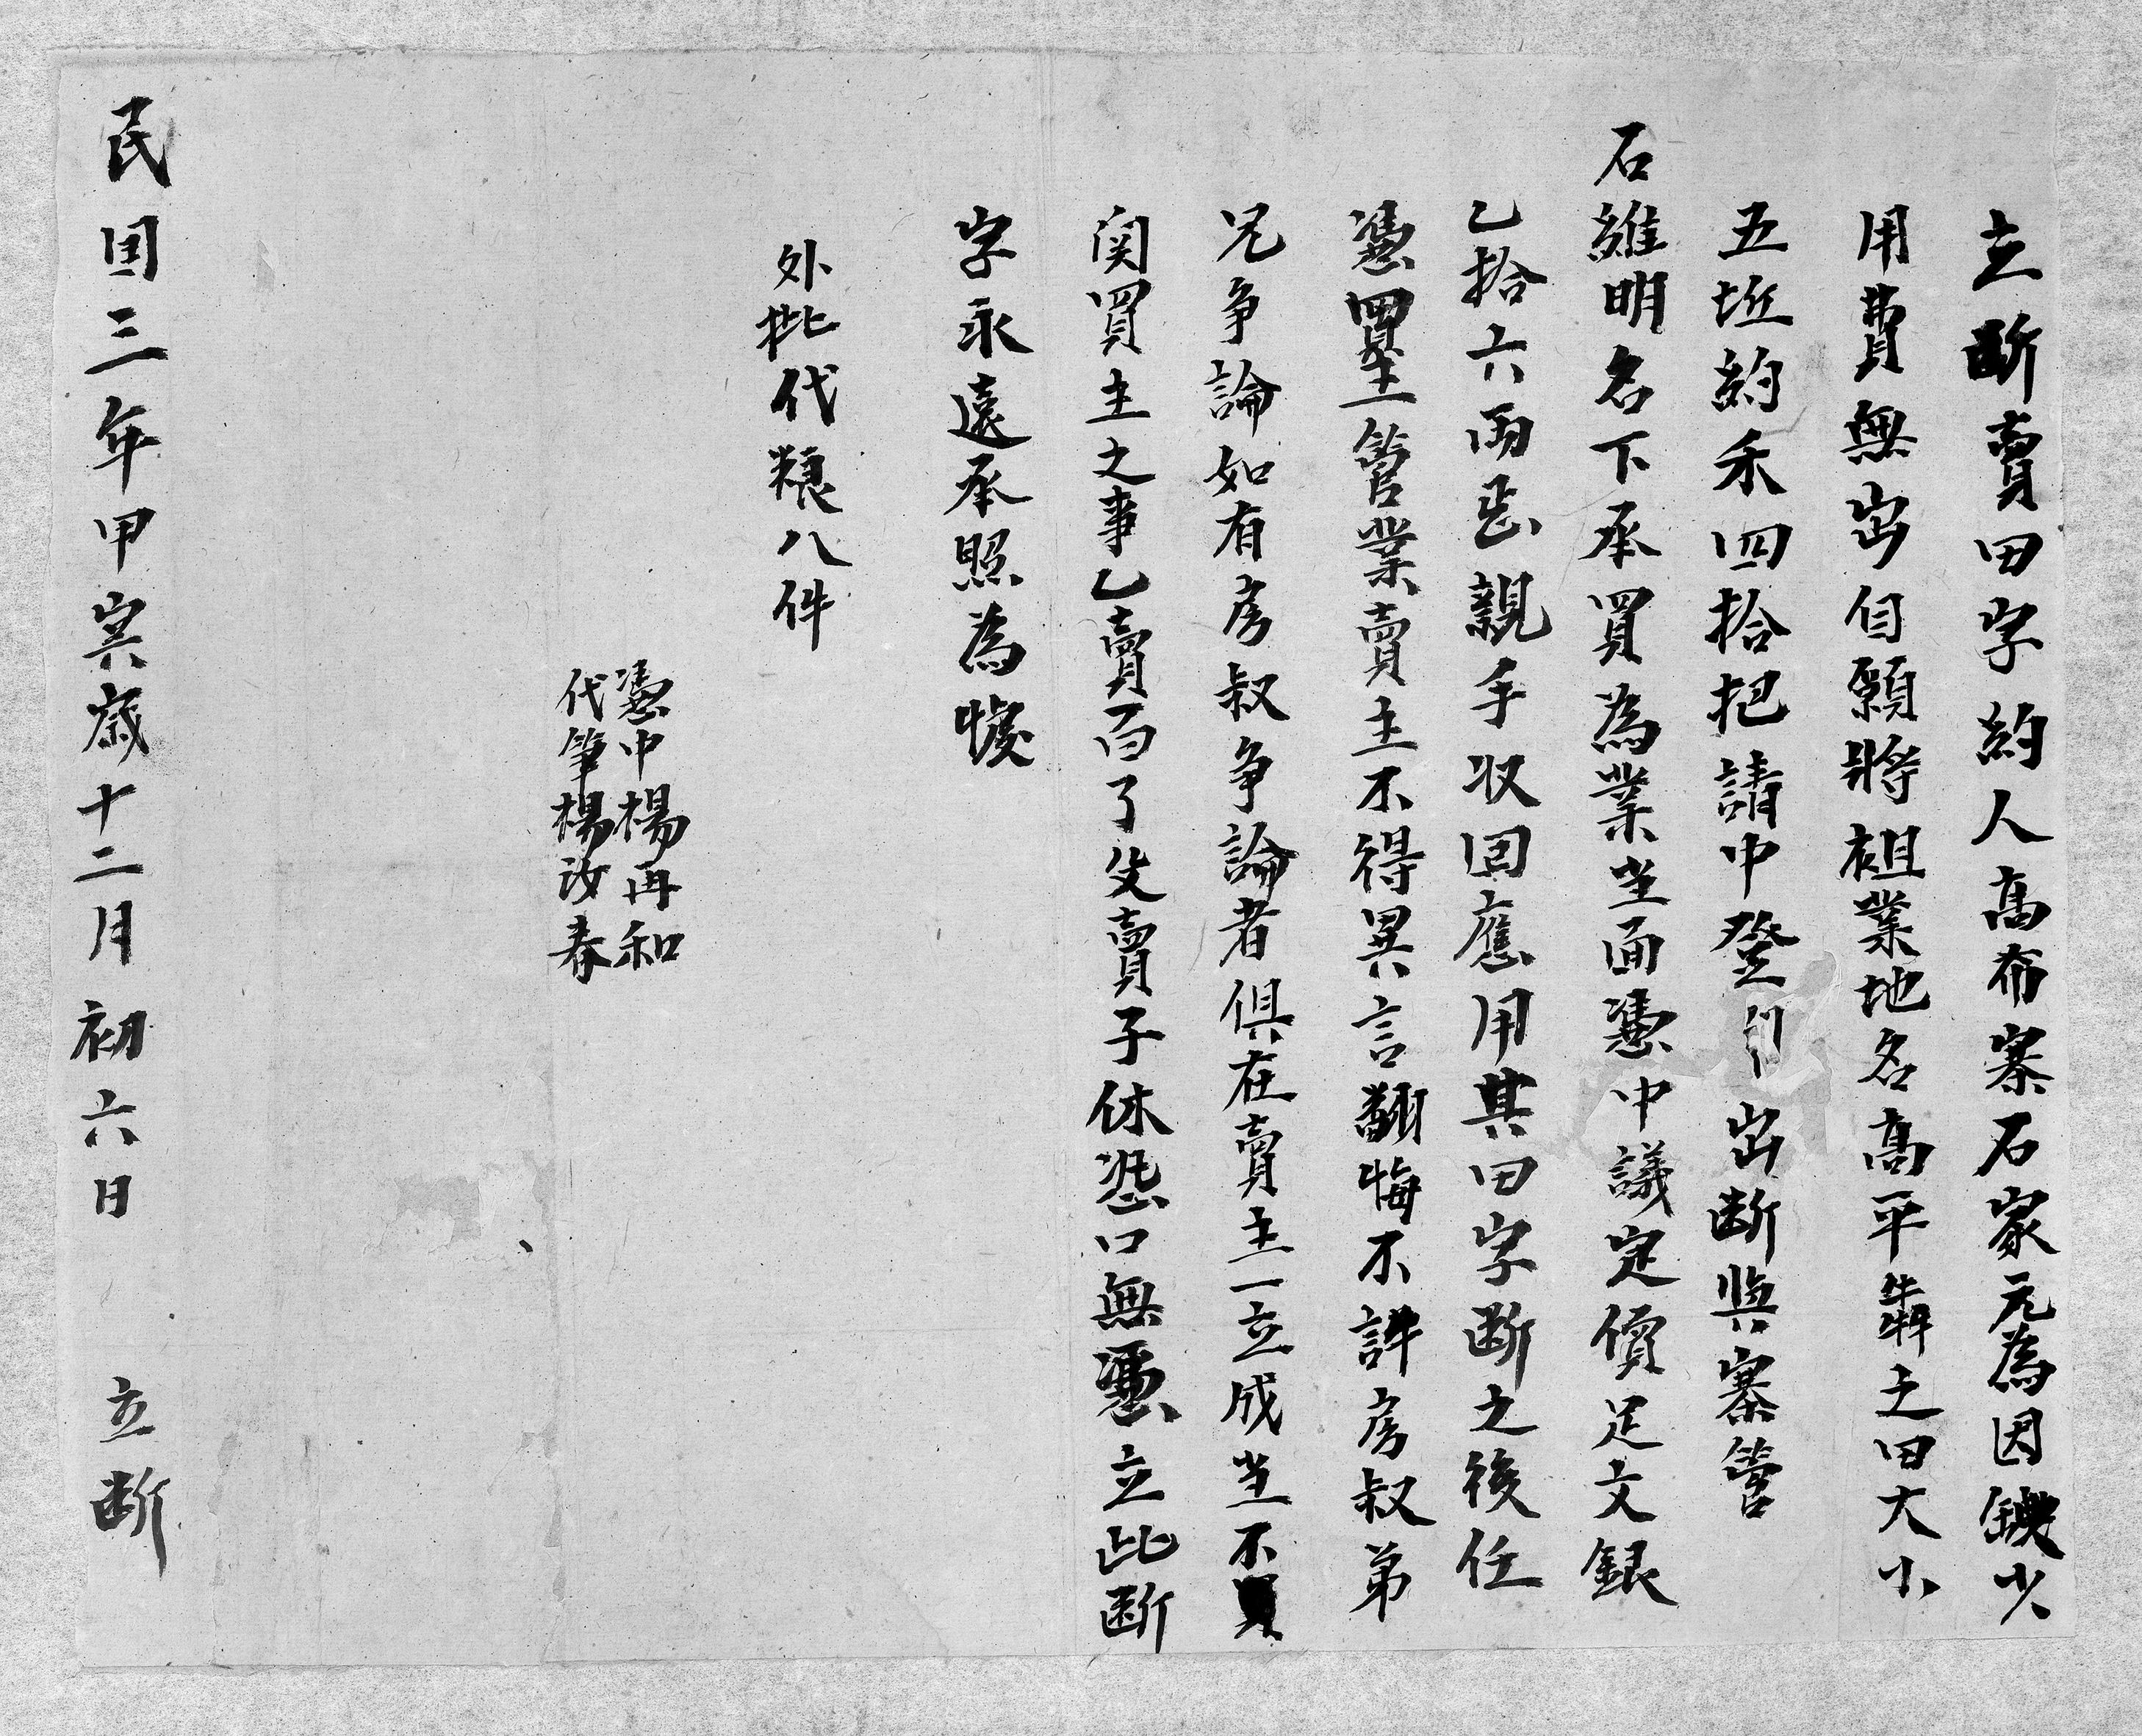 立斷賣田字約人高布寨石家元為因缺少
用費無出自願將祖業地名高平犇之田大小
五坵約禾四拾把請中登門出断與寨管
石維明名下承買為業坐面憑中議定價足文銀
乙拾六両正親手収回應用其田字断之後任
憑買主管業賣主不得異言翻悔不許房叔弟
兄爭論如有房叔爭論者俱在賣主一立成坐不買
関買主之事乙賣百了父賣子休恐口無憑立此断
字永遠承照為據
外批代粮八件
憑中楊再和
代筆楊汝春
民国三年甲寅歲十二月初六日 立断